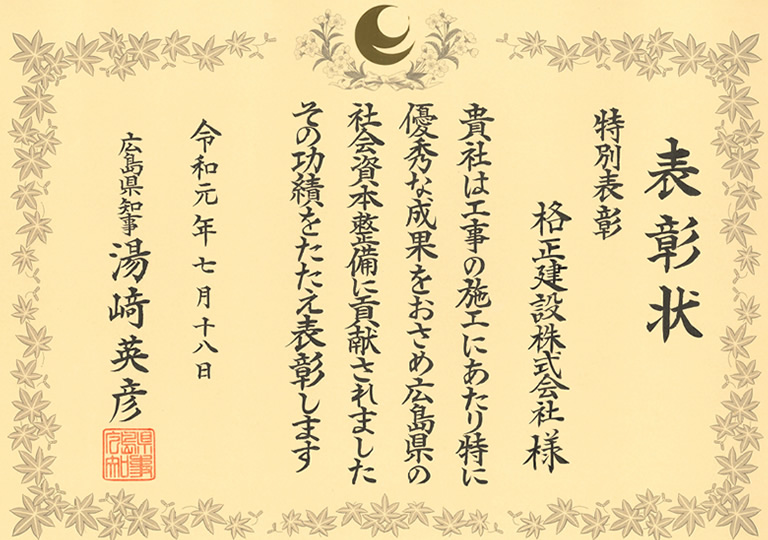 表彰状
特別表彰
格正建設株式会社 様
貴社は工事の施工にあたり特に
優秀な成果をおさめ広島県の
社会資本整備に貢献されました
その功績をたたえ表彰します
令和元年七月十八日
広島県知事 湯﨑英彦
広島県知事